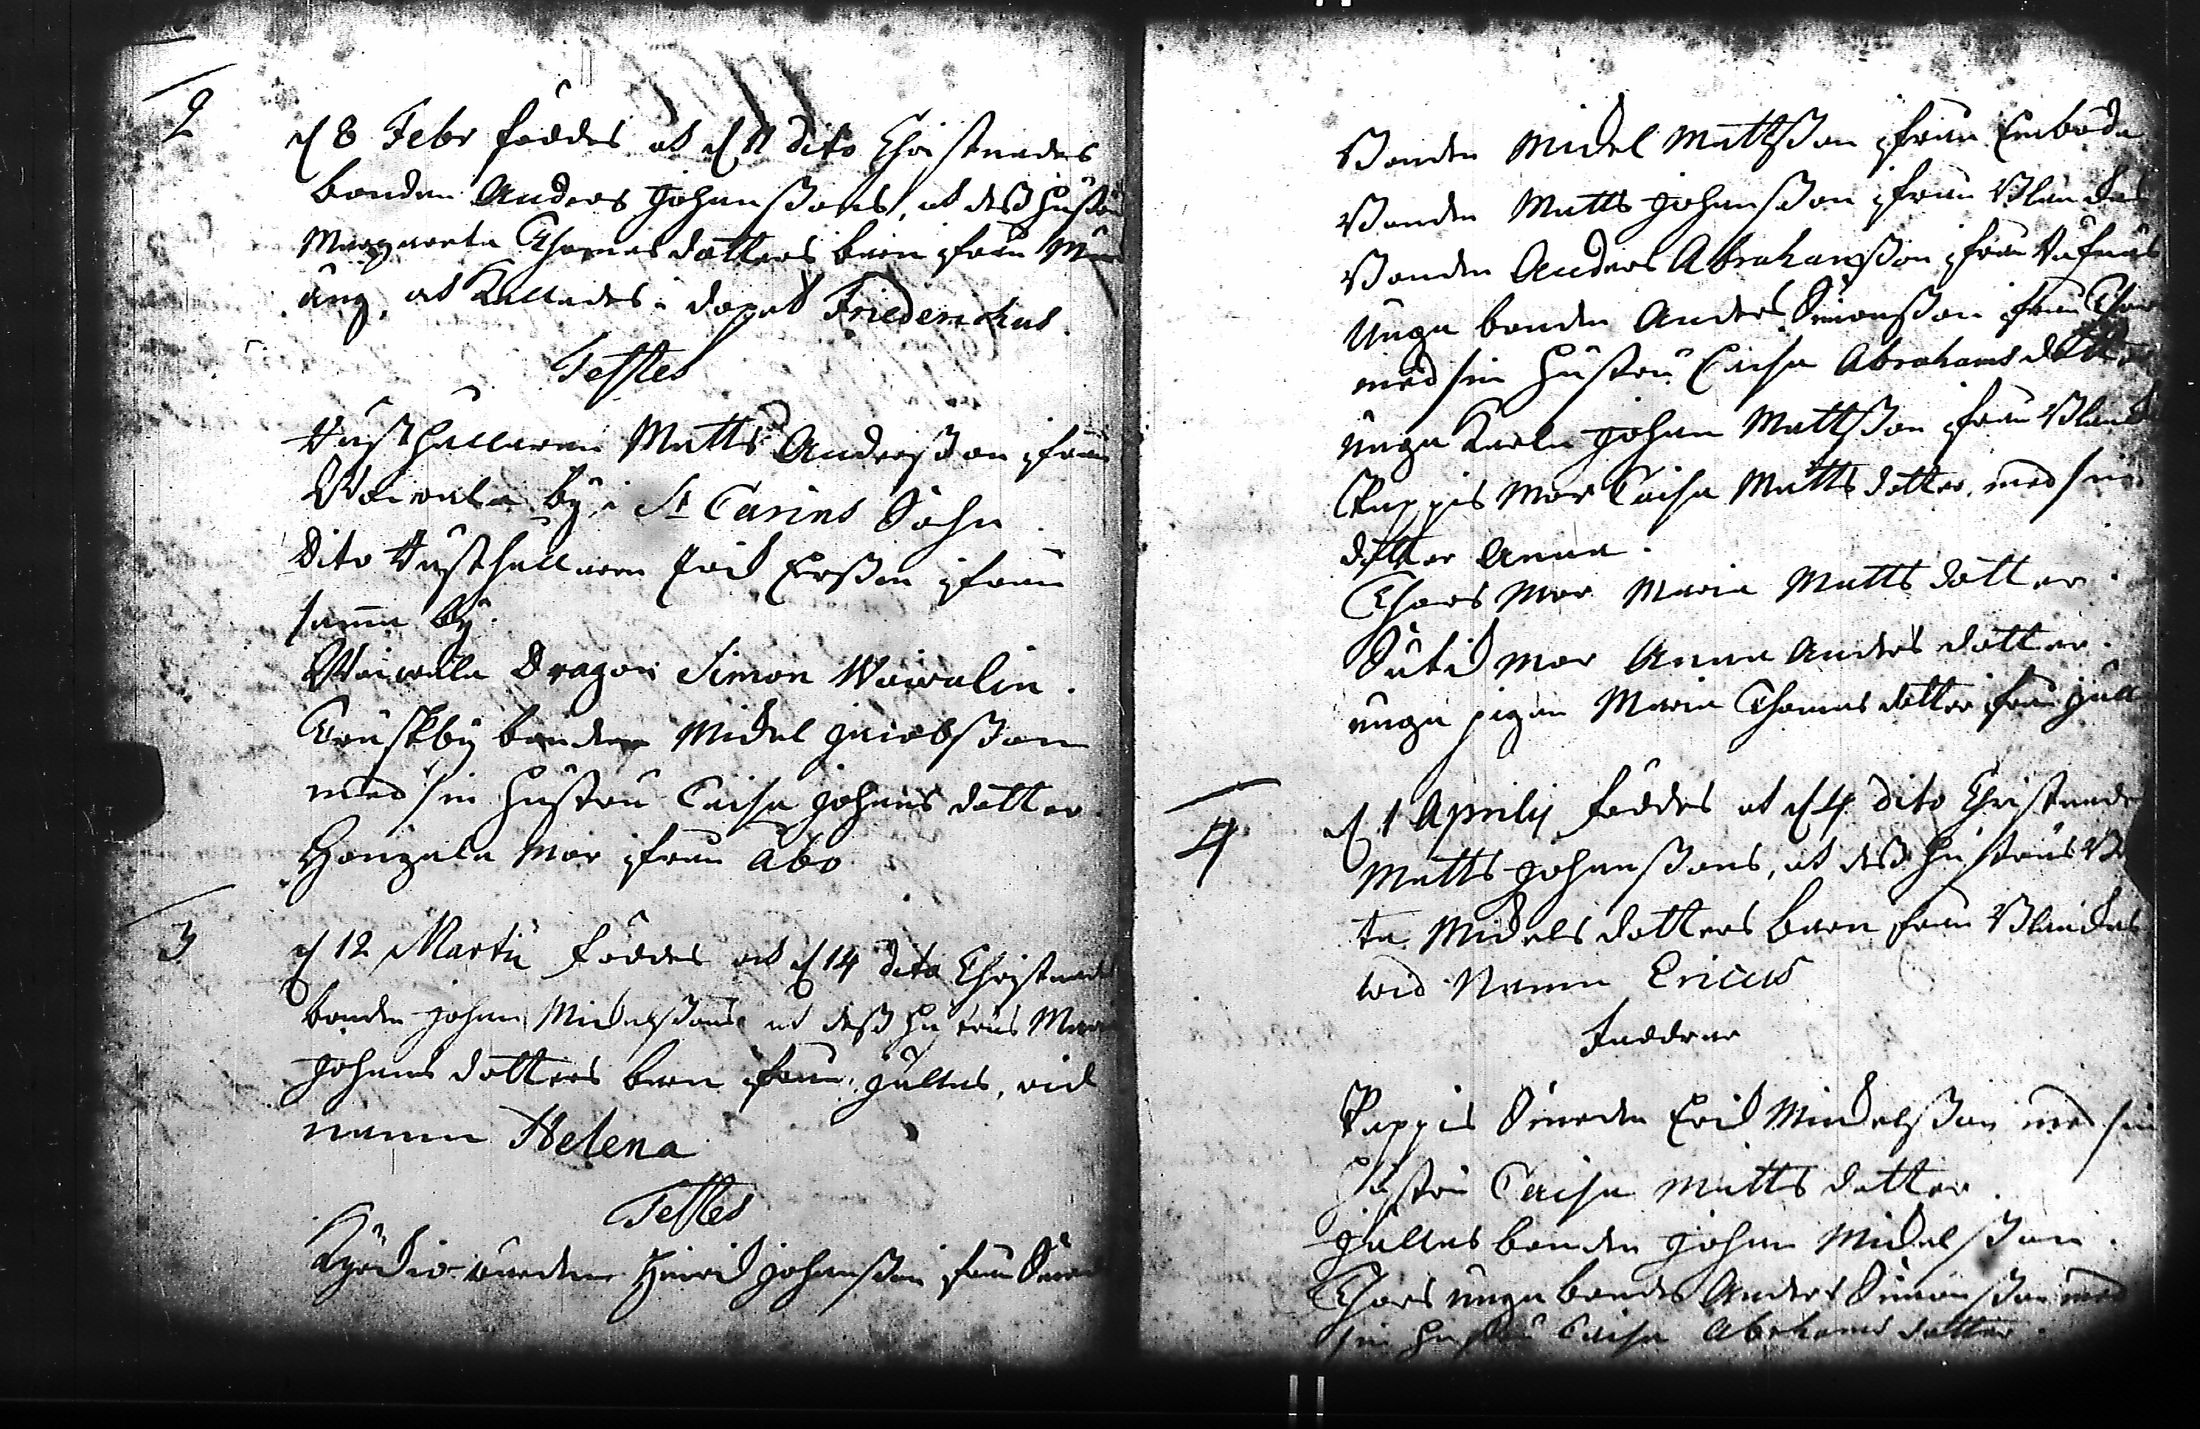 2
d 8 Febr föddes ok d 11 dito Christnades
bonden Anders Johanßons, ok deß hustru
Margareta Thomasdotters barn ifrån
ok kallades i dopet Friederichus.
Testes
Rusthållaren Matts Anderßon ifrån
Waiwala by i St Carins Sokn.
Dito Rusthållaren Erich Erßon ifrån
samma by.
Waiwala Dragon Simon Waiwalin.
bonden Michel Jacobßon
med sin hustru Caisa Johans dotter.
mor ifrån Åbo
3
d 12 Martii föddes ok d 14 dito Christnades
bonden Johan Michelßons ok deß hustrus
Johans dotters barn ifrån Jullas, wid
namn Helena
Testes
Hinrich Johanßon ifrån
Bonden Michel Mattßon ifrån Finboda
Bonden Matts Johanßon ifrån
Bonden Anders Abrahamßon ifrån
Unga bonden Anders Simonßon ifrån Thors
med sin hustru Caisa Abrahams dotter
unga Karlen Johan Mattßon ifrån
Pappis mor Caisa Matts dotter, med sin
dotter Anna.
Thors mor Maria Matts dotter.
mor Anna Anders dotter.
unga pigan Maria Thomas dotter ifrån Jull
4
d 1 Aprilij föddes ok d 4 dito Christnades
Matts Johanßons, ok deß hustrus
ta Michels dotters barn ifrån
wid Namn Ericus
Faddrar
Pappis Erich Michelßon med sin
hustru Caisa Matts dotter.
Jullas bonden Johan Michelßon.
Thors unga bonde Anders Simonßon med
sin hustru Caisa Abrahams dotter.